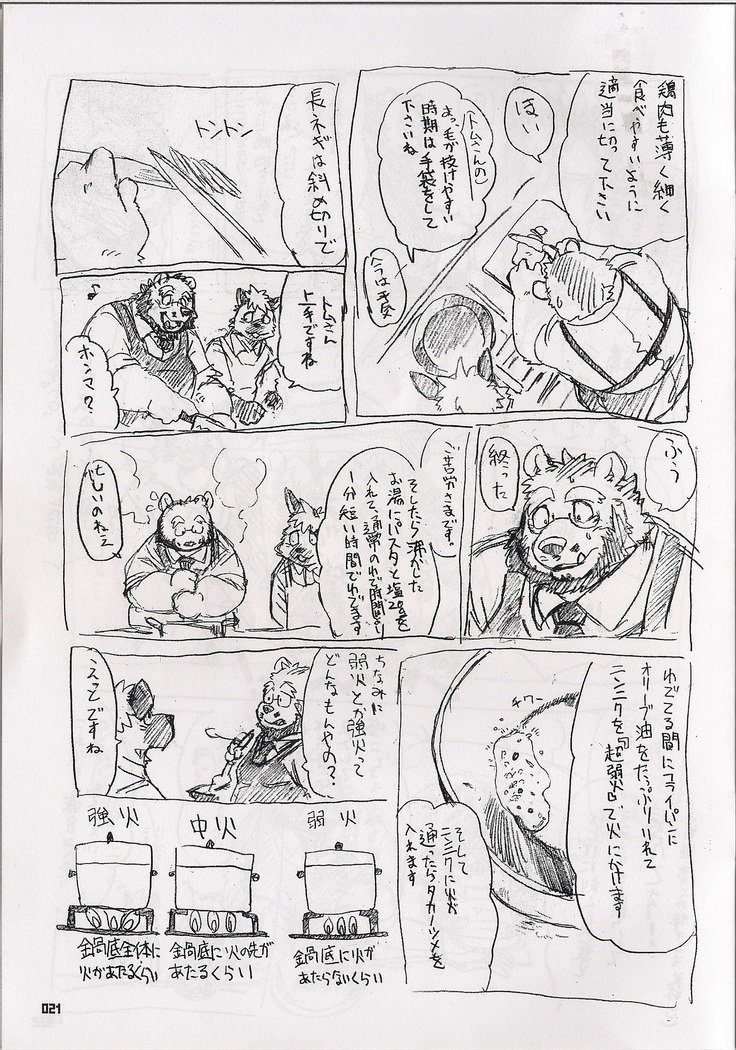 鶏肉も薄く細く
食べやすいように
適当に切って下さい
はい
(トムさんの)
あっ、毛が抜けやすい
時期は手袋をして
下さいね
今は平気
長ネギは斜め切りで
トントン
トムさん
上手ですね
ホンマ?
ふう
終った
ご苦労さまです。
そしたら沸かした
お湯にパスタと塩20gを
入れて、通常のゆで時間より
1分短い時間でゆでます
忙しいのねぇ
ゆでてる間にフライパンに
オリーブ油をたっぷりいれて
ニンニクを『超弱火』で火にかけます
チワー
そして
ニンニクに火が
通ったらタカノツメを
入れます
ちなみに
弱火とか強火って
どんなもんやの?
えっとですね
強火
中火
弱火
鍋底全体に
火があたるくらい
鍋底に火の先が
あたるくらい
鍋底に火が
あたらないくらい
021